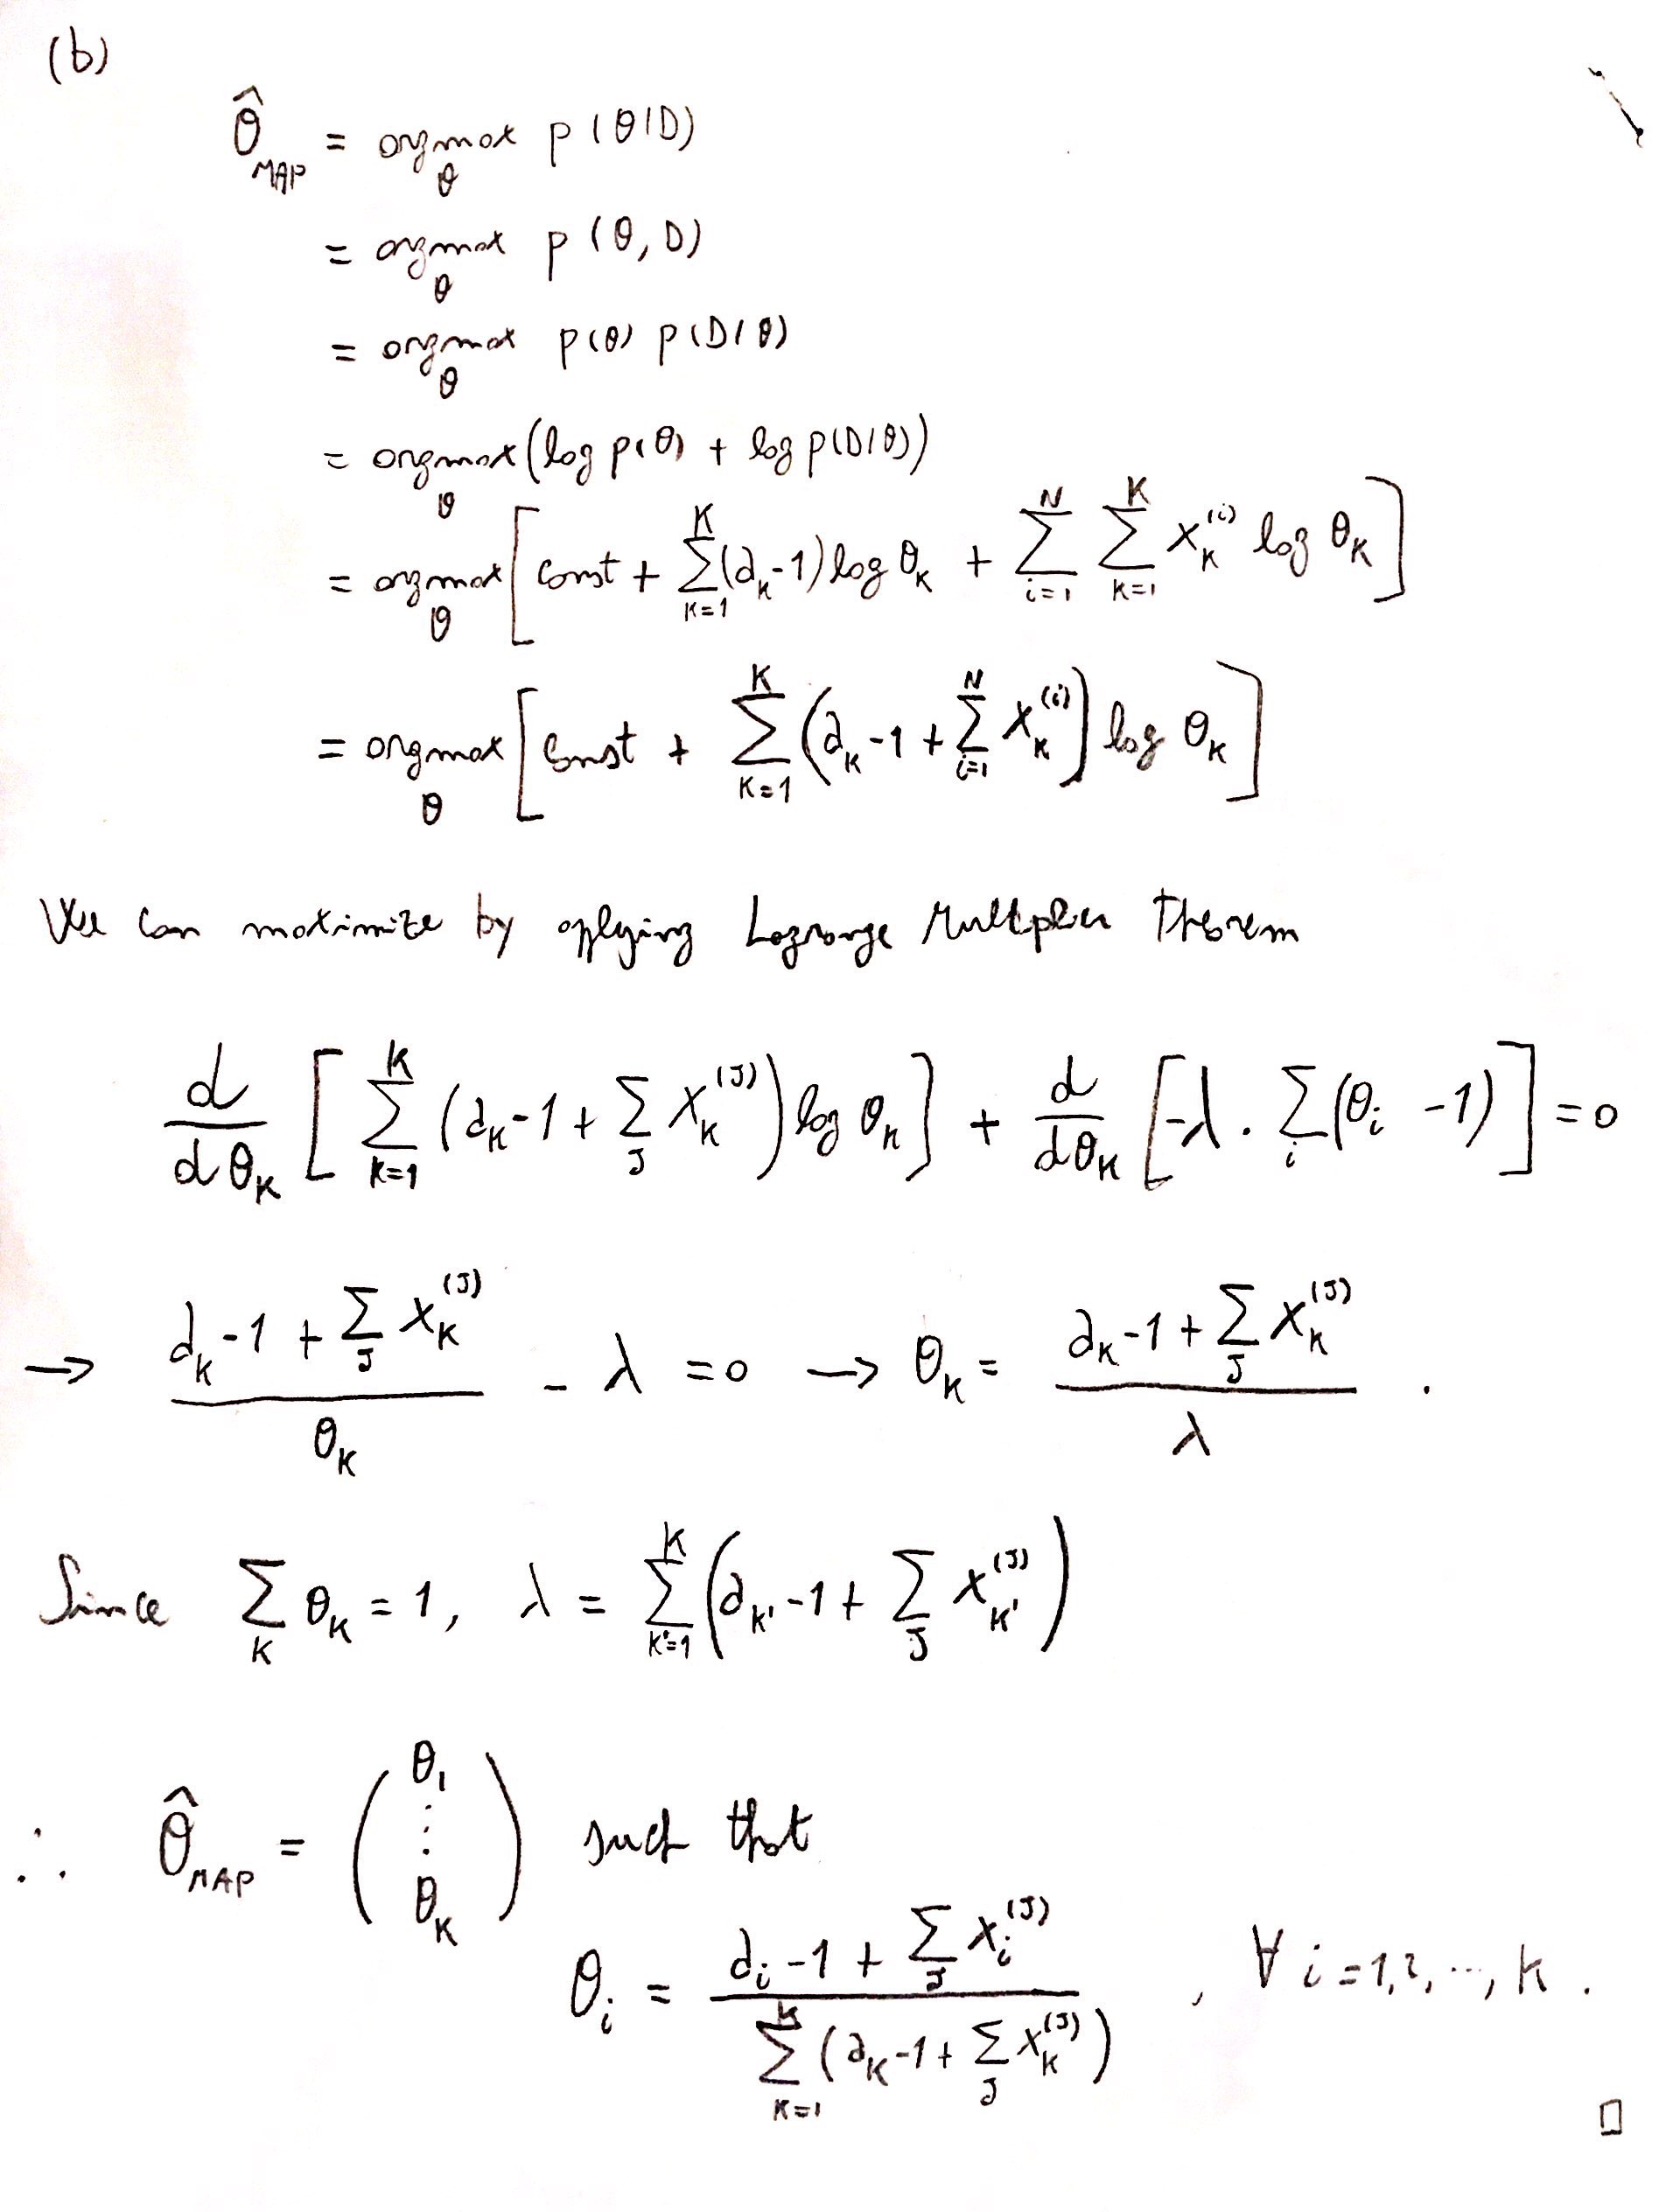 (b)
θ̂_MAP = argmax_θ p(θ|D)
= argmax_θ p(θ, D)
= argmax_θ p(θ) p(D|θ)
= argmax_θ (log p(θ) + log p(D|θ))
= argmax_θ [const + Σ_{k=1}^{K} (α_k - 1) log θ_k + Σ_{i=1}^{N} Σ_{k=1}^{K} x_k^{(i)} log θ_k]
= argmax_θ [const + Σ_{k=1}^{K} (α_k - 1 + Σ_{i=1}^{N} x_k^{(i)}) log θ_k]
We can maximize by applying Lagrange Multiplier Theorem
d/dθ_k [Σ_{k=1}^{K} (α_k - 1 + Σ_J x_k^{(J)}) log θ_k] + d/dθ_k [-λ · Σ_i (θ_i - 1)] = 0
→ (α_k - 1 + Σ_J x_k^{(J)}) / θ_k - λ = 0 → θ_k = (α_k - 1 + Σ_J x_k^{(J)}) / λ .
Since Σ_k θ_k = 1, λ = Σ_{k'=1}^{K} (α_{k'} - 1 + Σ_J x_{k'}^{(J)})
∴ θ̂_MAP = (θ_1 ⋮ θ_K) such that
θ_i = (α_i - 1 + Σ_J x_i^{(J)}) / (Σ_{k=1}^{K} (α_k - 1 + Σ_J x_k^{(J)})) , ∀ i = 1, 2, ..., K .
□